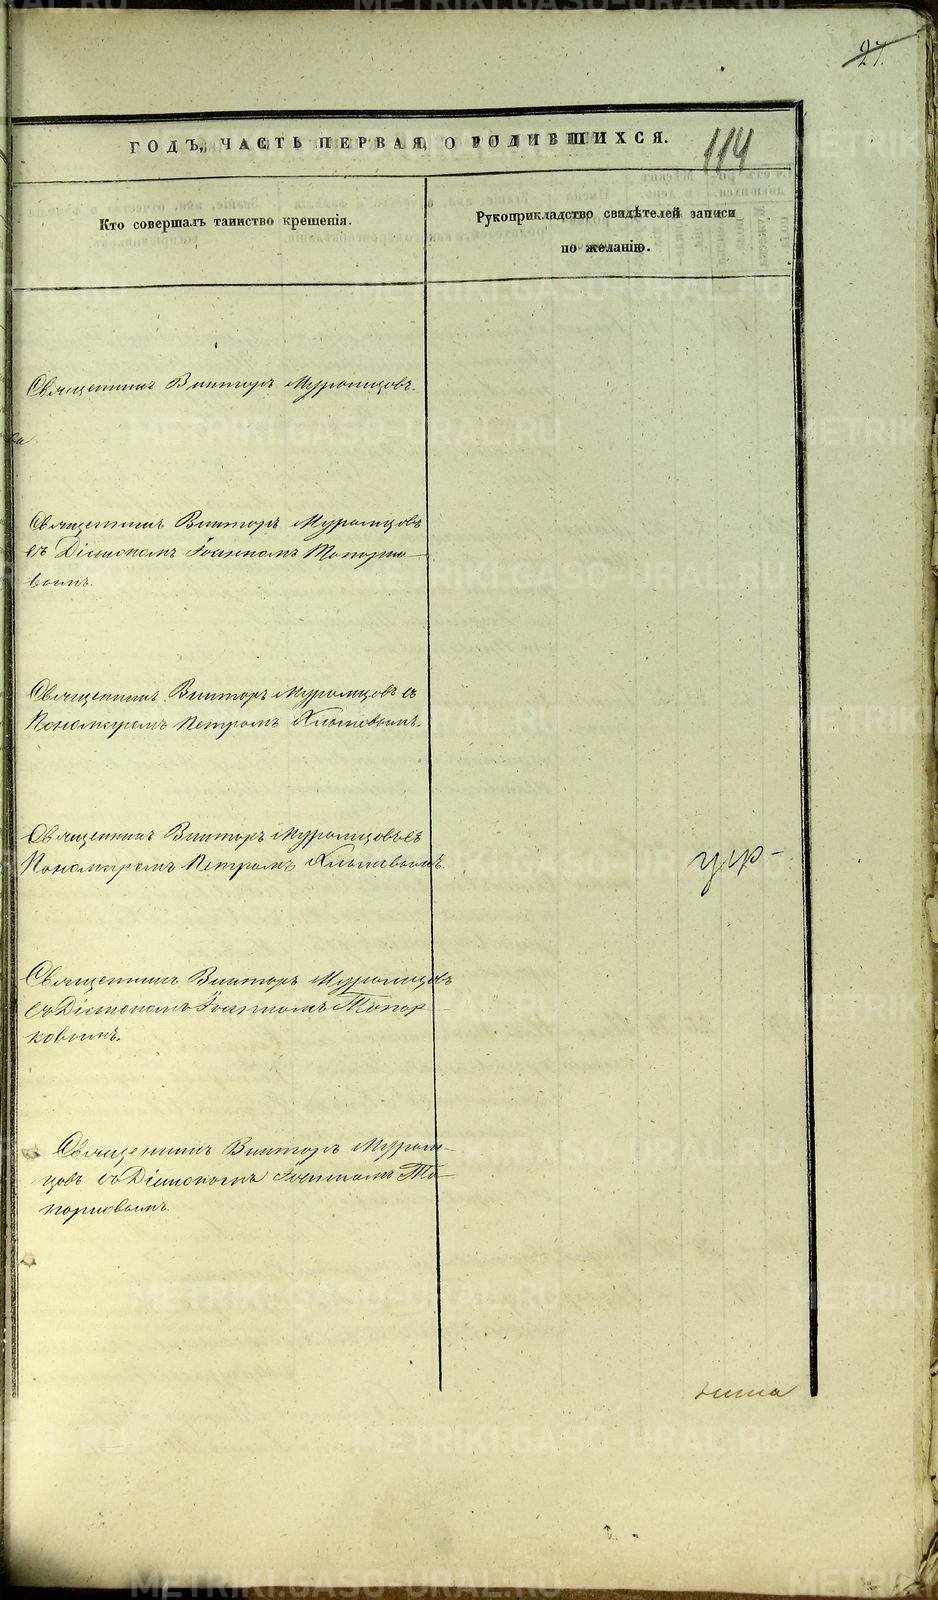 27.
ГОДЪ, ЧАСТЬ ПЕРВАЯ, О РОДИВШИХСЯ.
114
Кто совершалъ таинство крещенія.
Рукоприкладство свидѣтелей записи
по желанію.
Священникъ Викторъ Муромцовъ.
ва
Священникъ Викторъ Муромцовъ
съ Діакономъ Іоанномъ Топорко-
вымъ.
Священникъ Викторъ Муромцовъ съ
Пономаремъ Петромъ Хлыновымъ.
Священникъ Викторъ Муромцовъ съ
Пономаремъ Петромъ Хлыновымъ.
Священникъ Викторъ Муромцовъ
съ Діакономъ Іоанномъ Топор-
ковымъ.
Священникъ Викторъ Муром-
цовъ съ Діакономъ Іоанномъ То-
порковымъ.
METRIKI.GASO-URAL.RU